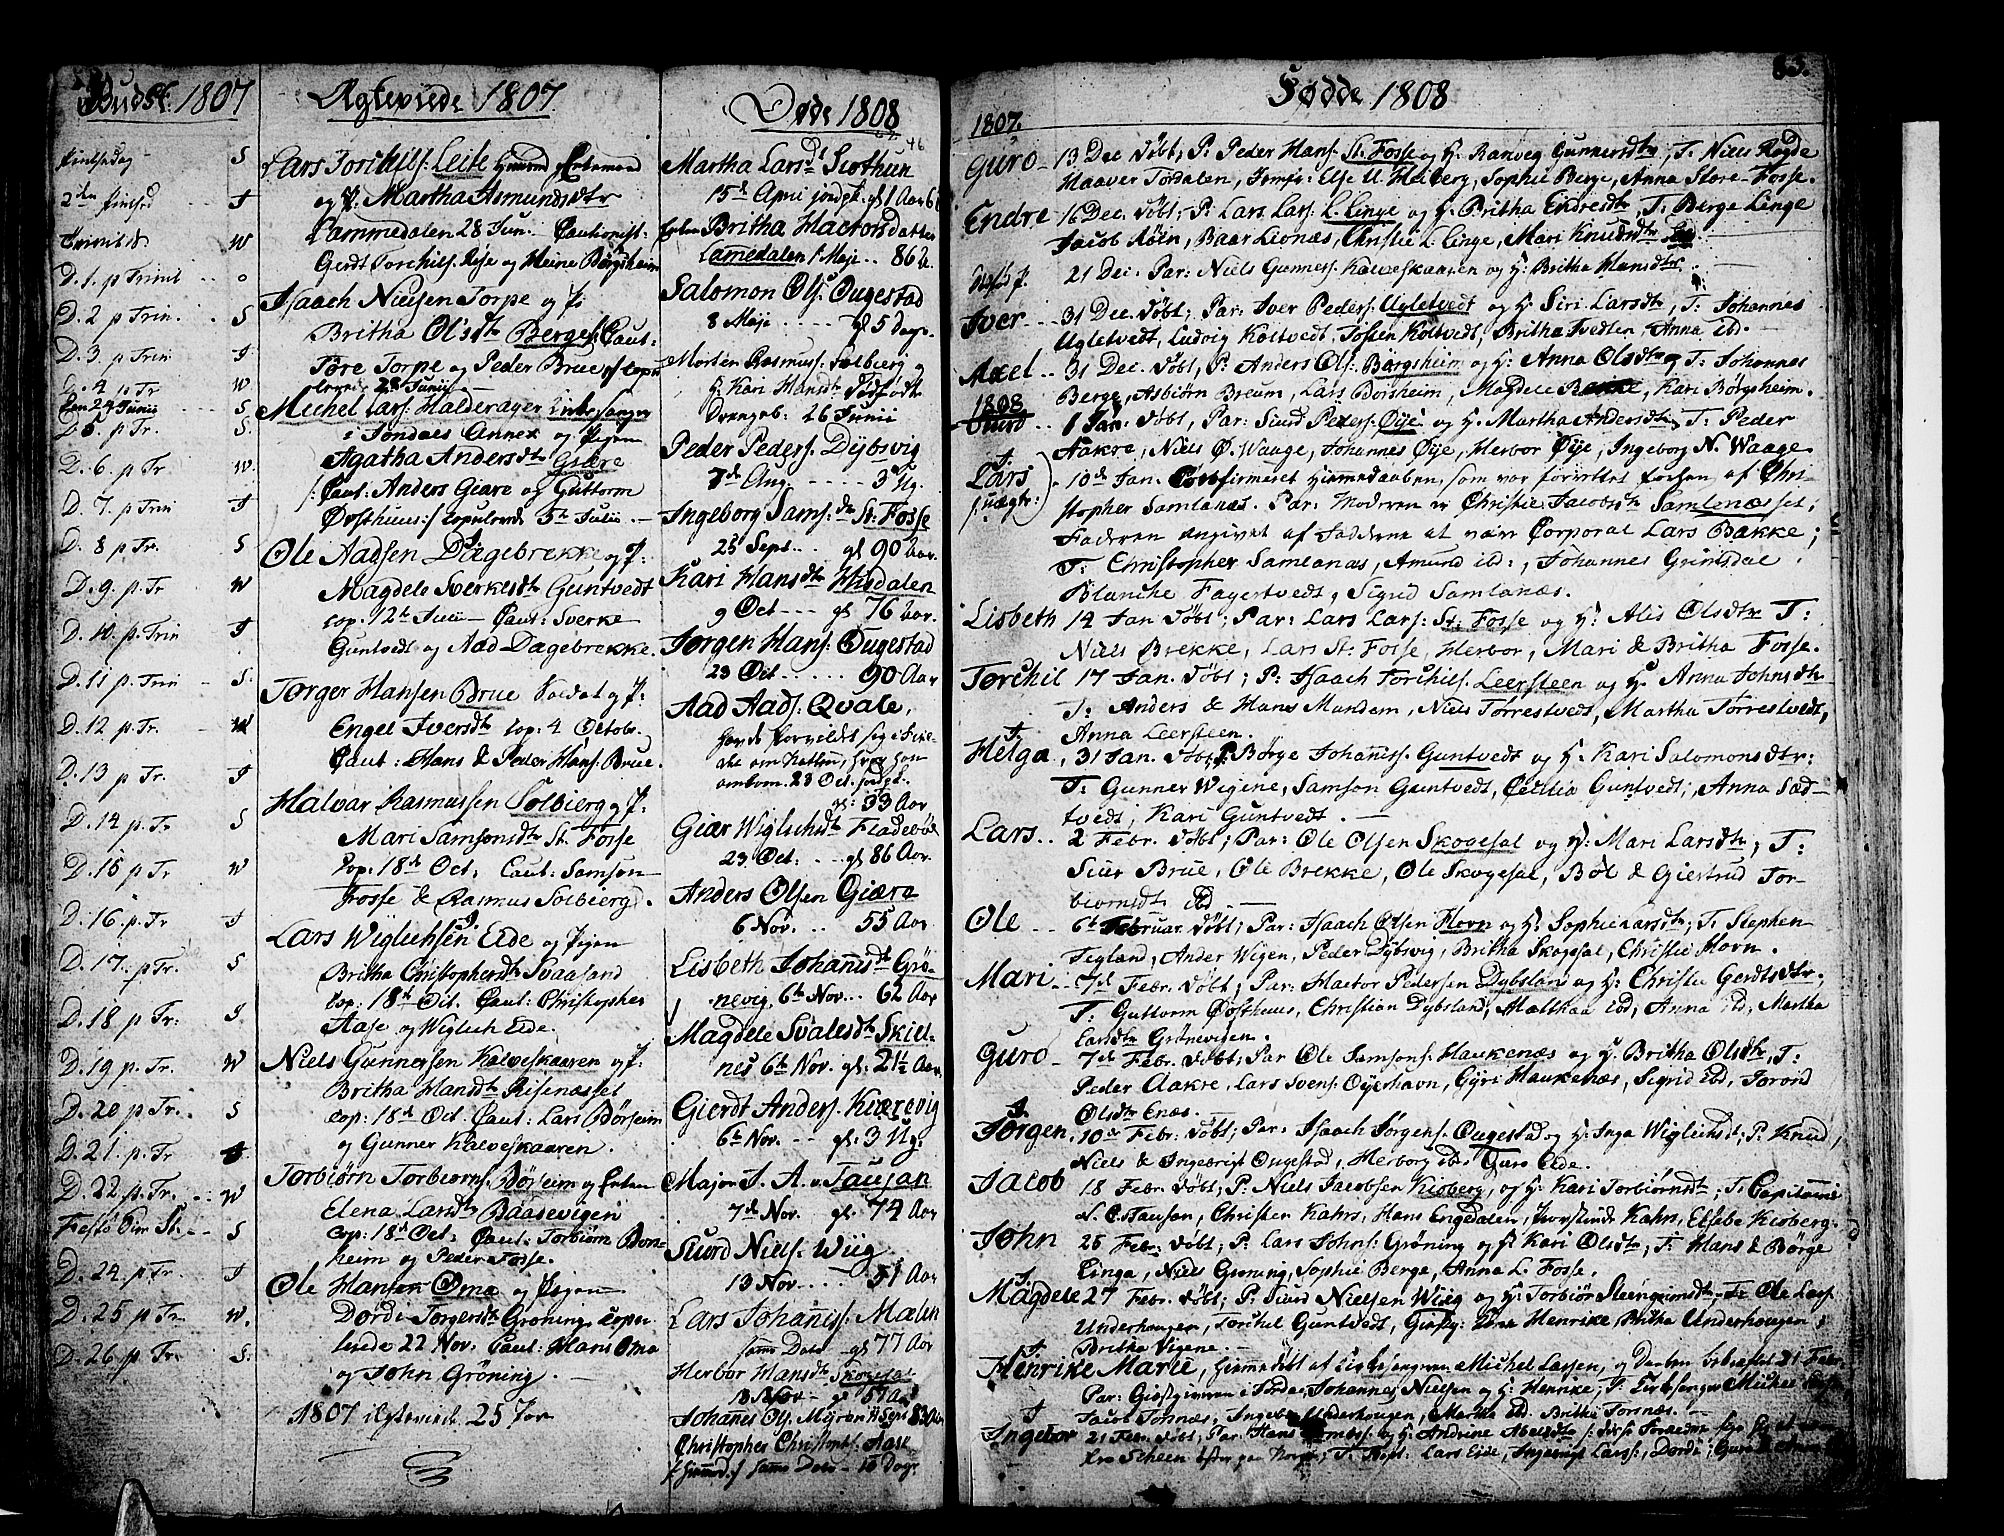 1807
Pintsedag S
2den Pintsed
Trinit W
D. 1. p Trinit o
D. 2 p Trin. S
D. 3. p Trin J
D. 4 p Tr W
Den 24 Junii S
D. 5. p Tr. S.
D. 6. p Tr W.
D. 7. p Trin J
D. 8 p Tr. S
D. 9. p. Tr. W
D. 10. p. Trin J
D. 11 p. Trin S.
D. 12 p. Tr. W
D. 13 p Tr. J
D. 14. p. Tr S
D. 15 p Tr W
D. 16. p. Tr J
D. 17. p Tr. S
D. 18 p Tr: J
D. 19. p. Tr. W
D. 20 p Tr. S
D. 21. p. Tr J
D. 22. p. Tr. W
S
D. 24 p. Tr. J
D. 25 p Tr W.
D. 26 p. Tr. S.
Ægteviede 1807
Lars Torchils: Leite
og P. Martha Asmundsdtr
Lammedalen 28 Jun.
Gerdt Torchils: og Heine Börgsheim
Isaach Nielsen Torpe og P:
Britha Olsdtr Berge /: Caut:
Tore Torpe og Peder Brue :/ copu
lerede 28 Junii
Michel Lars: Halderager
i Jondals Annex og Pigen
Agatha Andersdtr Giære
/: Caut: Anders Giære og Guttorm
Østhuus :/ copulerede 5te Julii
Ole Aadsen Dagebrekke og P:
Magdele Sverkesdtr Guntvedt
cop. 12te Julii Caut: Sverke
Guntvedt og Aad Dagebrekke.
Torger Hansen Brue Soldat og P:
Engel Iversdtr cop: 4 Octob.
Caut: Hans & Peder Hans: Brue.
Halvar Rasmussen Solbierg og P:
Mari Samsonsdtr St. Fosse
Cop. 18de Oct. Caut: Samson
Fosse & Rasmus Solbierg.
Lars Wiglichsen Eide og Pigen
Britha Christophersdtr Svaasand
cop: 18de Oct. Caut: Christopher
Aase og Wiglich Eide.
Niels Gunnersen Kalveskaaren og P:
Britha Hansdtr Risenæsset
cop: 18de Oct Caut: Lars Börseim
og Gunner Kalveskaaren.
Torbiørn Torbiørns: Börseim og Enken
Elena Larsdtr Baasevigen
cop: 18de Oct: Caut: Torbiørn Bör-
heim og Peder Fosse.
Ole Hansen Oma og Pigen
Dordi Torgersdtr Groning copu-
lerede 22 Nov. Caut: Hans Oma
og John Gröning.
1807 25 Par
Døde 1808
46
Martha Larsdtr Slothun
15de April gl 1 Aar
Enken Britha Hactorsdatter
Lamedalen 1 Maji .. 86 A.
Salomon Ols: Ougestad
8 Maji gl 5 Dage.
Morten Rasmus: Solbierg og
H. Kari Hansdtr Dödfødt
Drengeb: 26 Junii
Peder Peders: Dybsvig
7de Aug. 3 Ug.
Ingeborg Sams:dtr St. Fosse
25 Sept. gl 90 Aar.
Kari Hansdtr Hisdalen
9 Oct gl 76 Aar.
Jorgen Hans: Ougestad
23 Oct 90 Aar
Aad Aads: Qvale,
havde forvildt sig i
ombom. 23 Oct. jordet.
gl: 33 Aar
Giær Wiglichsdtr Fladebøe
23 Oct: gl 86 Aar.
Anders Olsen Giæra
6 Nov. 55 Aar
Lisbeth Johanisdtr Grö-
nevig. 6te Nov. 62 Aar
Magdele Svalesdtr Skiel-
nes 6te Nov. gl: 2½ Aar.
Gierdt Anders: Kierevig
6te Nov. gl. 3 Ug:
Major J. A. v: Tausan
7de Nov. 74 Aar
Siurd Niels: Wiig
13 Nov. 51 Aar
Lars Johanis: Malen
samme Dato gl 77 Aar
Herbor Hansdtr
13 Nov gl 57 Aar
Johanes Ols. Myran 83 Aar
Christopher Christoph: Aase
samme Dato 10 Dage
83.
Fødde 1808
1807.
Guro 13 Dec Døbt; P: Peder Hans: St. Fosse og H: Ranveg Gunnersdtr; T: Niels Røgde
Haaver Tordalen, Jomfr: Else U. Heiberg, Sophie Berge, Anna Store-Fosse.
Endre 16 Dec. Døbt; P: Lars Lars: L. Linge og H. Britha Endresdtr. T: Berge Linge
Jacob Röen, Baar Lionæs, Christie L. Linge, Mari Knudsdtr
21 Dec. Par: Niels Gunners: Kalveskaaren og H: Britha Hansdtr.
Iver 31 Dec. Døbt, Par: Iver Peders: Ugletvedt og H: Siri Larsdtr, T: Johannes
Ugletvedt, Ludvig Koltvedt, Tosten Koltvedt, Britha Tvedten Anna ibd.
Axel 31 Dec. Døbt, P: Anders Ols: Börgsheim og H: Anna Olsdtr, T: Johannes
Berge, Asbiørn Breum, Lars Börsheim, Magdele Bakke, Kari Börgsheim.
1808
Siurd 1 Jan: Døbt, Par: Siurd Peders: Øye og H. Martha Andersdtr; T: Peder
Aakre, Niels O. Waage, Johannes Øye, Herbor Øye, Ingeborg N. Waage
Lars (uægte) 10de Jan. Confirmeret Hiemmedaaben, som var forrettet forhen af Chri-
stopher Samlanæs. Par: Moderen er Christie Jacobsdtr Samlenæsset;
Faderen angivet af Fadderne at være Corporal Lars Bakke;
T: Christopher Samlanæs, Amund ibd:, Johannes Grimsdal
Blanche Fagertvedt, Sigrid Samlanæs.
Lisbeth 14 Jan Døbt; Par: Lars Lars: St: Fosse og H: Alis Olsdtr T:
Niels Brekke, Lars St: Fosse, Herbor, Mari & Britha Fosse.
Torchil 17 Jan. Døbt; P: Isaach Torchils: Leersteen og H. Anna Johnsdtr
T: Anders & Hans Mundem, Niels Torrestvedt, Martha Torrestvedt,
Anna Leersteen.
Helga 31 Jan. Døbt, P. Børge Johannis: Guntvedt og H: Kari Salomonsdtr:
T: Gunner Wigene, Samson Guntvedt, Cecilia Guntvedt, Anna Sæd-
tvedt, Kari Guntvedt.
Lars 2 Febr. Døbt; Par: Ole Olsen Skogesal og H: Mari Larsdtr, T:
Siur Brue, Ole Brekke, Ole Skogesal, Böl & Giertrud Tor-
biornsdtr ibd.
Ole 6te Februar Døbt; Par: Isaach Olsen Horn og H: Sophie Larsdtr; T: Stephen
Fegland, Ander Wigen, Peder Dybsvig, Britha Skogesal, Christie Horn.
Mari 7de Febr. Døbt; Par: Hactor Pedersen Dybsland og H: Christie Gerdtsdtr,
T: Guttorm Østhuus, Christian Dybsland, Malthaa ibd, Anna ibd, Martha
Larsdtr Grönevigen.
Guro 7de Febr. Døbt; Par Ole Samsons: Haukenæs og H. Britha Olsdtr, T:
Peder Aakre, Lars Svens: Oyerhavn, Gyri Haukenæs, Sigrid ibd, Torond
Olsdtr Enæs.
Jørgen 10de Febr: Døbt; Par: Isaach Jørgens: Ougestad og H. Inga Wiglichsdt; T: Knud,
Niels & Ingebrigt Ougestad, Herborg ibd, Guro Eide.
Jacob 18 Febr. Døbt; P: Niels Jacobsen Kioberg, og H: Kari Torbiörnsdtr; T: Capitaine
L. C. Tausan, Christen Kahrs, Hans Engedalen, Kahrs, Elsebe Kioberg.
John 25 Febr. Døbt; P: Lars Johns: Gröning og H Kari Olsdtr; T: Hans & Börge
Linga, Niels Groning, Sophie Berge, Anna L. Fosse.
Magdele 27 Febr. Døbt; P: Siurd Nielsen Wiig og H: Torbiør Steengrimsdtr; T: Ole Lars:
Underhougen, Torchel Guntvedt, Henrike, Britha Underhougen,
Britha Vigene.
Henrike Marie, hiemmedøbt af Kirkesangeren Michel Larsen, og Daaben bekræftet 21 Febr.
Par: Giæstgiveren i Jondal, Johannes Nielsen og H: Henrike; T: Kirkesanger Michel
Jacob Torsnæs, Ingeb: Underhougen, Martha ibd. Britha Torsnæs.
Ingebor 21 Febr. Døbt; Par: Hans og H: Andrine Abelsdtr
T: Lars Eide, Ingebrigt Lars:, Dordi, Guro & Anna